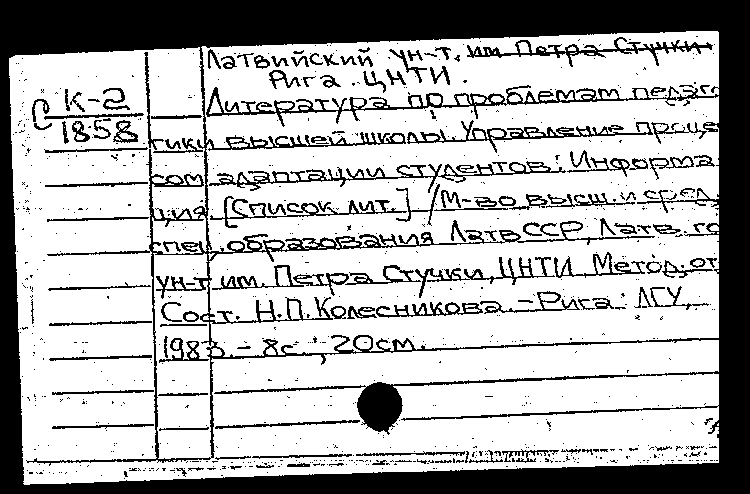 Латвийский ун-т. им. Петра Стучки
Рига. ЦНТИ.
С К-2
1858
Литература по проблемам педаго
гики высшей школы. Управление проце
сом адаптации студентов: Информа
ция. [Список лит.] / М-во высш. и сред.
спец. образования ЛатвССР, Латв. го
ун-т им. Петра Стучки, ЦНТИ. Метод. от
Сост. Н.П. Колесникова. - Рига: ЛГУ,
1983. - 8с.; 20см.